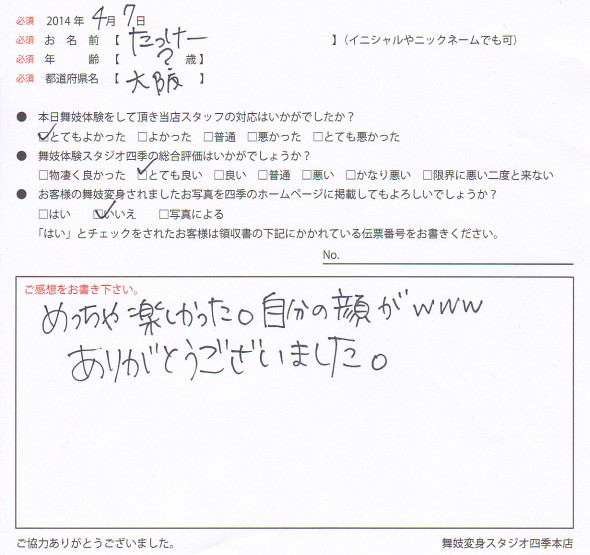 必須 2014年 4月 7日
必須 お名前【 たっけー 】(イニシャルやニックネームでも可)
必須 年齢【 ? 歳】
必須 都道府県名【 大阪 】
● 本日舞妓体験をして頂き当店スタッフの対応はいかがでしたか?
☑とてもよかった □よかった □普通 □悪かった □とても悪かった
● 舞妓体験スタジオ四季の総合評価はいかがでしょうか?
□物凄く良かった ☑とても良い □良い □普通 □悪い □かなり悪い □限界に悪い二度と来ない
● お客様の舞妓変身されましたお写真を四季のホームページに掲載してもよろしいでしょうか?
□はい ☑いいえ □写真による
「はい」とチェックをされたお客様は領収書の下記にかかれている伝票番号をお書きください。
No.
ご感想をお書き下さい。
めっちゃ楽しかった。自分の顔がwww
ありがとうございました。
ご協力ありがとうございました。 舞妓変身スタジオ四季本店